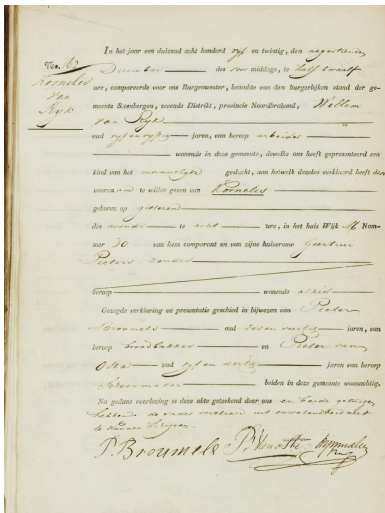 No. 62
Kornelis
van
Ryk
In het jaar een duizend acht honderd vyf en twintig, den negentienden
December des voor middags, te half twaalf
ure, compareerde voor ons Burgemeester, beambte van den burgerlijken stand der ge-
meente Steenbergen, zevende Distrikt, provincie Noordbraband, Willem
van Ryk
oud vyf en vyftig jaren, van beroep arbeider
wonende in deze gemeente, dewelke ons heeft gepresenteerd een
kind van het mannelyke geslacht, aan hetwelk dezelve verklaard heeft den
voornaam te willen geven van Kornelis
geboren op gisteren
des avonds te acht ure, in het huis Wijk M Num-
mer 30 van hem comparent en van zijne huisvrouw Geertrui
Pieters zonder
beroep wonende alhier
Gezegde verklaring en presentatie geschied in bijwezen van Pieter
Broumels oud zeven veertig jaren, van
beroep broodbakker en Pieter van
Osta oud vyf en dertig jaren van beroep
Schoenmaker beiden in deze gemeente woonachtig.
Na gedane voorlezing is deze akte geteekend door ons en beide getuigen
hebbende de vader verklaard uit onwetendheid niet
te kunnen schryven.
P. Broumels P. van Osta